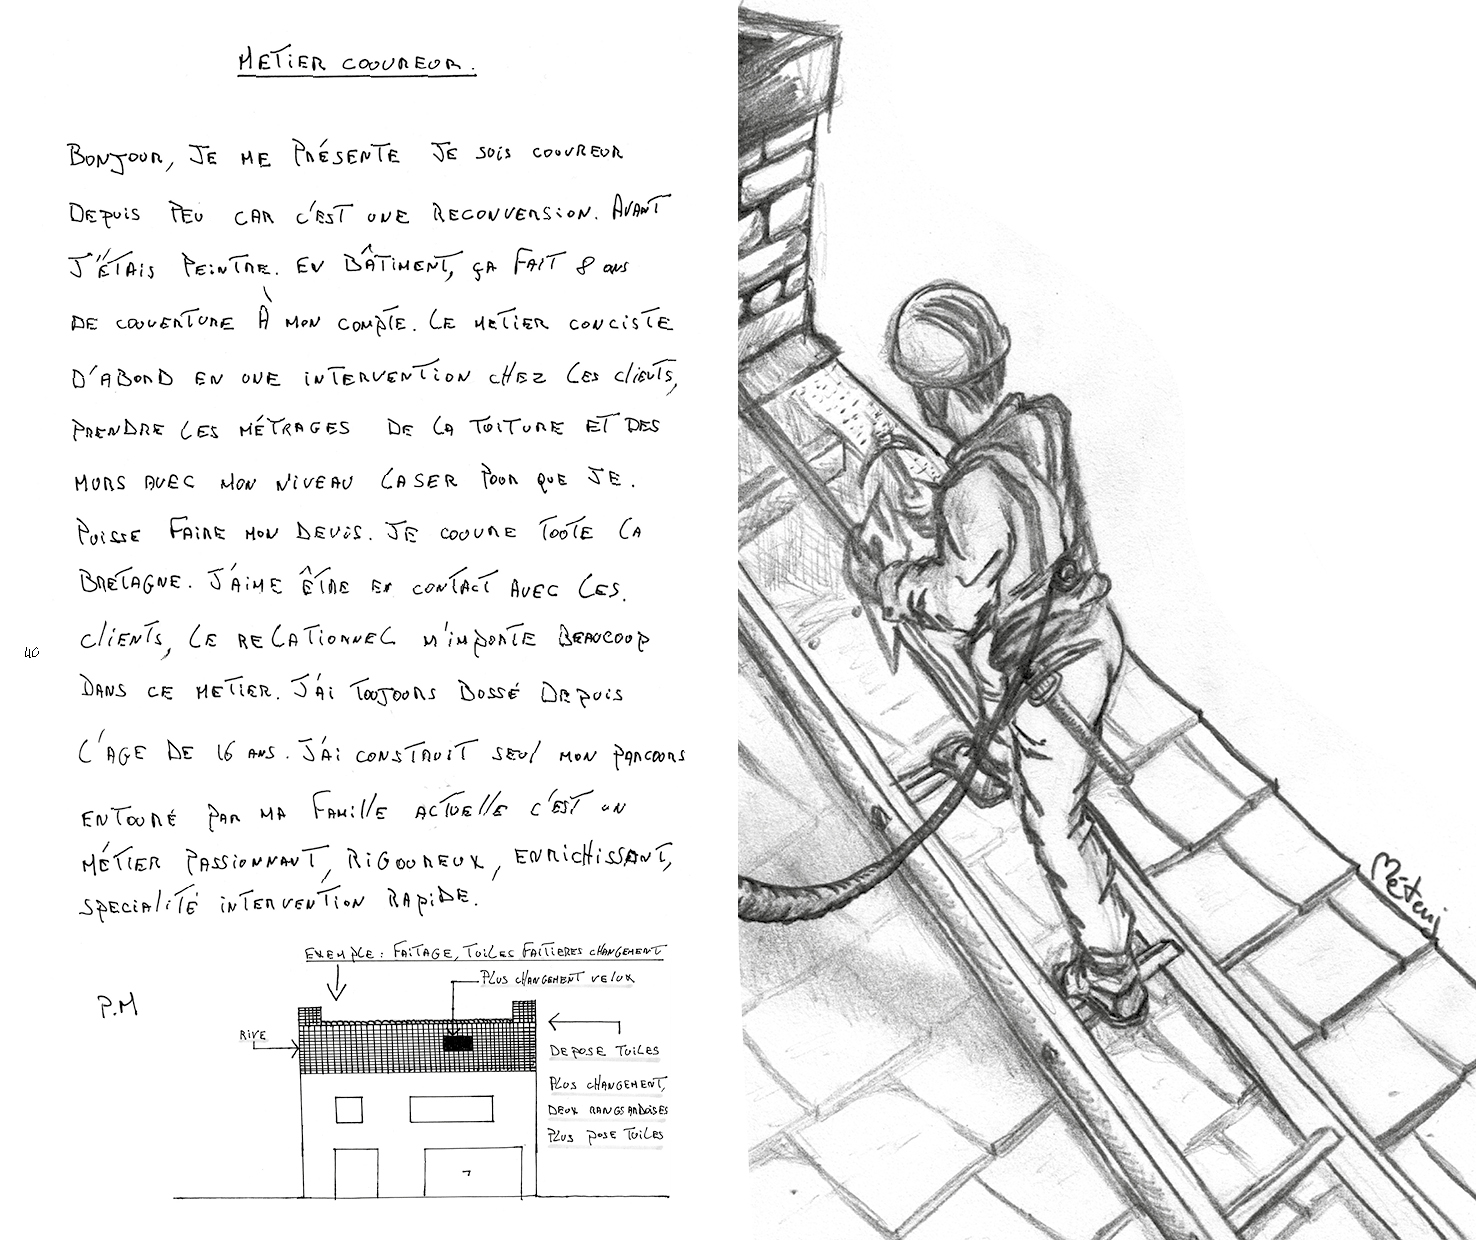 METIER COUVREUR.
BONJOUR, JE ME PRÉSENTE JE SUIS COUVREUR
DEPUIS PEU CAR C'EST UNE RECONVERSION. AVANT
J'ÉTAIS PEINTRE. EN BÂTIMENT, ÇA FAIT 8 ANS
DE COUVERTURE À MON COMPTE. LE METIER CONCISTE
D'ABORD EN UNE INTERVENTION CHEZ LES CLIENTS,
PRENDRE LES MÉTRAGES DE LA TOITURE ET DES
MURS AVEC MON NIVEAU LASER POUR QUE JE.
PUISSE FAIRE MON DEVIS. JE COUVRE TOUTE LA
BRETAGNE. J'AIME ÊTRE EN CONTACT AVEC LES.
CLIENTS, LE RELATIONNEL M'IMPORTE BEAUCOUP
40
DANS CE METIER. J'AI TOUJOURS BOSSÉ DEPUIS
L'AGE DE 16 ANS. J'AI CONSTRUIT SEUL MON PARCOURS
ENTOURÉ PAR MA FAMILLE ACTUELLE C'EST UN
MÉTIER PASSIONNANT, RIGOUREUX, ENRICHISSANT,
SPECIALITÉ INTERVENTION RAPIDE.
EXEMPLE : FAITAGE, TUILES FAITIERES CHANGEMENT
PLUS CHANGEMENT VELUX
P.M
RIVE
DEPOSE TUILES
PLUS CHANGEMENT,
DEUX RANGS ARDOISES
PLUS POSE TUILES